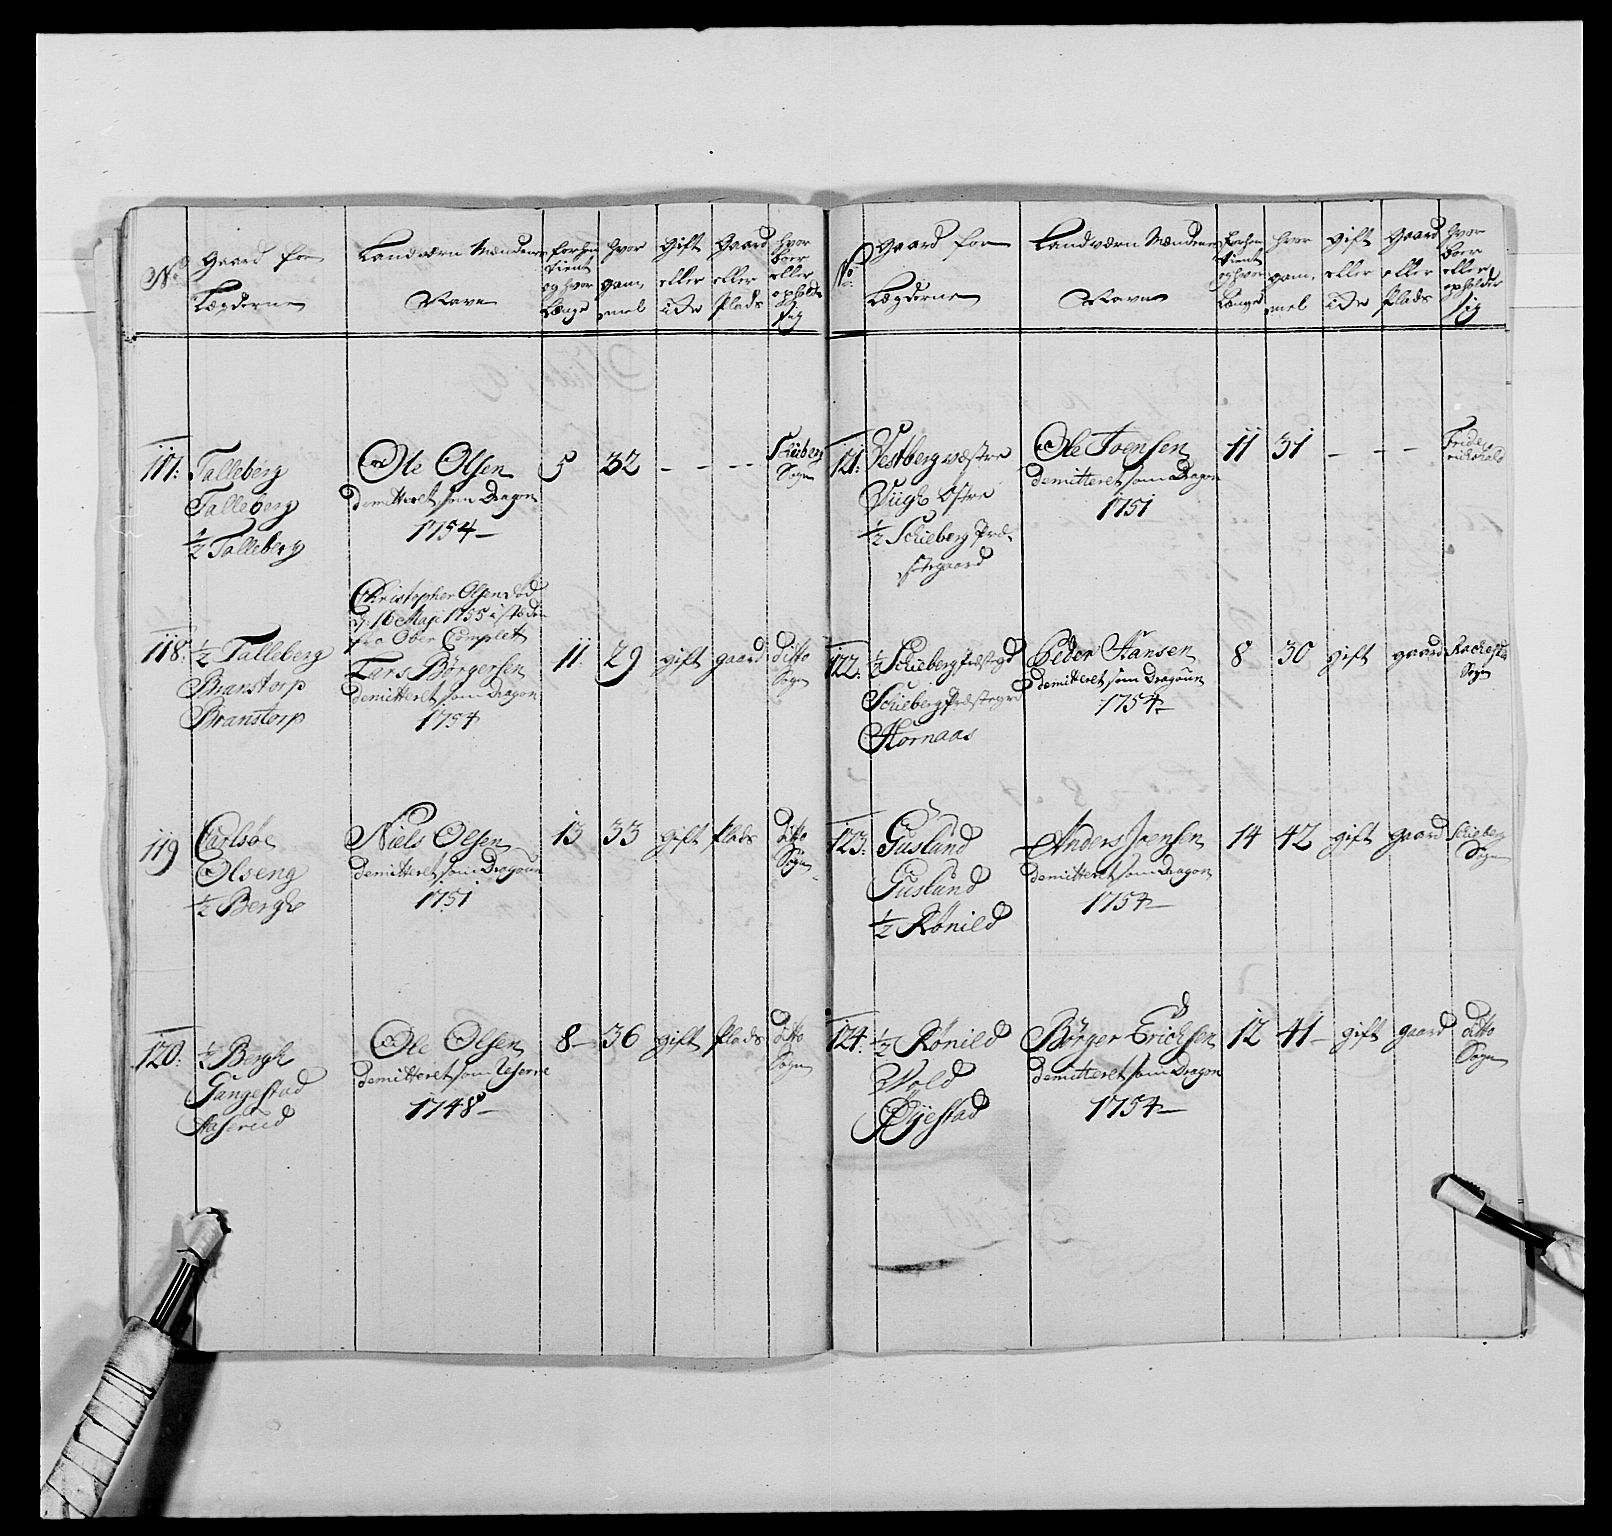 No
Gaard for
Lægderne
Landværn Mændenes
Navn
forhen
tient
og hvor
Længe
hvor
gam,
mel
Gift
eller
ei
Gaard
eller
Plads
hvor
boer
eller
opholder
sig
117:
Talleberg
Talleberg
1/2 Talleberg
Ole Olsen
demitteret som Dragon
1754
5
32
- - -
Schieberg
Sogn
118:
1/2 Talleberg
Branstorp
Branstorp
Christopher Olsen død
d: 16 Maji 1755 i stæden
fra Ober Complet
Lars Börgersen
demitteret som Dragon
1754
11
29
gift
gaard
ditto
Sogn
119
Carlsöe
Olseng
1/2 Bergh
Niels Olsen
demitteret som Dragoun
1751
13
33
gift
Plads
ditto
Sogn
120:
1/2 Bergh
Gangestad
Aaserud
Ole Olsen
demitteret som
1748
8
36
gift
Plads
ditto
Sogn
No
Gaard for
Lægderne
Landværn Mændenes
Navn
forhen
tient
og hvor
Længe
hvor
gam,
mel
Gift
eller
ei
Gaard
eller
Plads
hvor
boer
eller
opholder
sig
121:
Vestberg væstre
Viigh östre
1/2 Schieberg Præ-
stegaard
Ole Joensen
demitteret som Dragon
1751
11
31
- - -
Fride-
richshald
122:
1/2 Schieberg Præstegd
Schieberg Præstegrd
Hornaas
Peder Hansen
demitteret som Dragoun
1754
8
30
gift
gaard
Rachestad
Sogn
123:
Guslund
Guslund
1/2 Rönild
Anders Joensen
demitteret som Dragon
1754
14
42
gift
gaard
Schieberg
Sogn
124:
1/2 Rönild
Wold
Öyestad
Börger Erichsen
demitteret som Dragon
1754
12
41
gift
gaard
ditto
Sogn